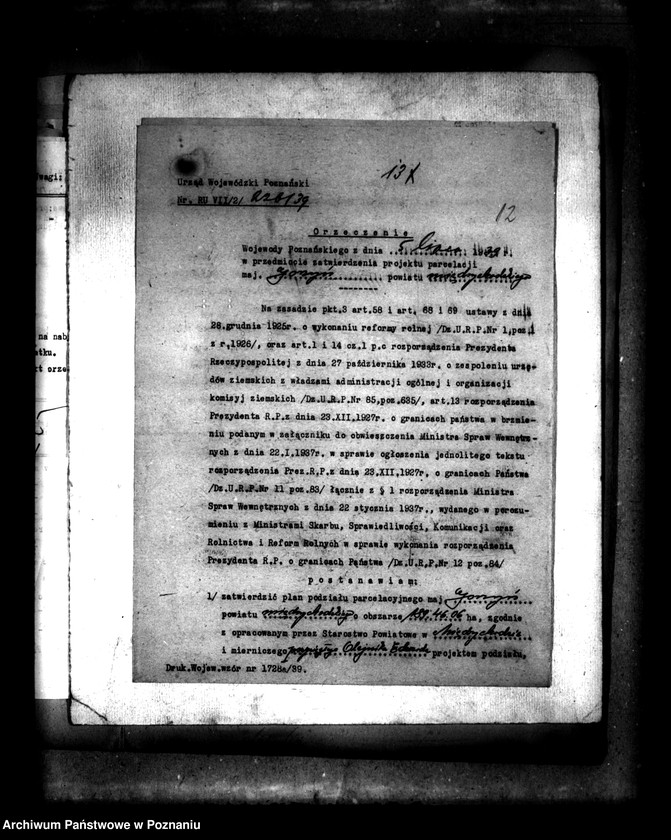 wagi:
13
12
Urząd Wojewódzki Poznański
Nr. RU VII/2/
Orzeczenie
Wojewody Poznańskiego z dnia 5 lipca 1939 r.
w przedmiocie zatwierdzenia projektu parcelacji
maj. Gorzyń powiatu międzychodzkiego
Na zasadzie pkt.3 art.58 i art. 68 i 69 ustawy z dnia
28.grudnia 1925r. o wykonaniu reformy rolnej /Dz.U.R.P.Nr 1,poz.1
z r.1926/, oraz art.1 i 14 cz.1 p.c rozporządzenia Prezydenta
Rzeczypospolitej z dnia 27 października 1933r. o zespoleniu urzę-
dów ziemskich z władzami administracji ogólnej i organizacji
komisyj ziemskich /Dz.U.R.P.Nr 85,poz.635/, art.13 rozporządzenia
Prezydenta R.P.z dnia 23.XII.1927r. o granicach państwa w brzmie-
niu podanym w załączniku do obwieszczenia Ministra Spraw Wewnętrz-
nych z dnia 22.I.1937r. w sprawie ogłoszenia jednolitego tekstu
rozporządzenia Prez.R.P.z dnia 23.XII.1927r. o granicach Państwa
/Dz.U.R.P.Nr 11 poz.83/ łącznie z § 1 rozporządzenia Ministra
Spraw Wewnętrznych z dnia 22 stycznia 1937r., wydanego w porozu-
mieniu z Ministrami Skarbu, Sprawiedliwości, Komunikacji oraz
Rolnictwa i Reform Rolnych w sprawie wykonania rozporządzenia
Prezydenta R.P. o granicach Państwa /Dz.U.R.P.Nr 12 poz.84/
postanawiam:
1/ zatwierdzić plan podziału parcelacyjnego maj. Gorzyń
powiatu międzychodzkiego o obszarze 159,46,06 ha, zgodnie
z opracowanym przez Starostwo Powiatowe w Międzychodzie
i mierniczego przysięgłego Olejnika projektem podziału,
Druk.Wojew.wzór nr 1728a/39.
na nab
atku.
rt orze
Archiwum Państwowe w Poznaniu